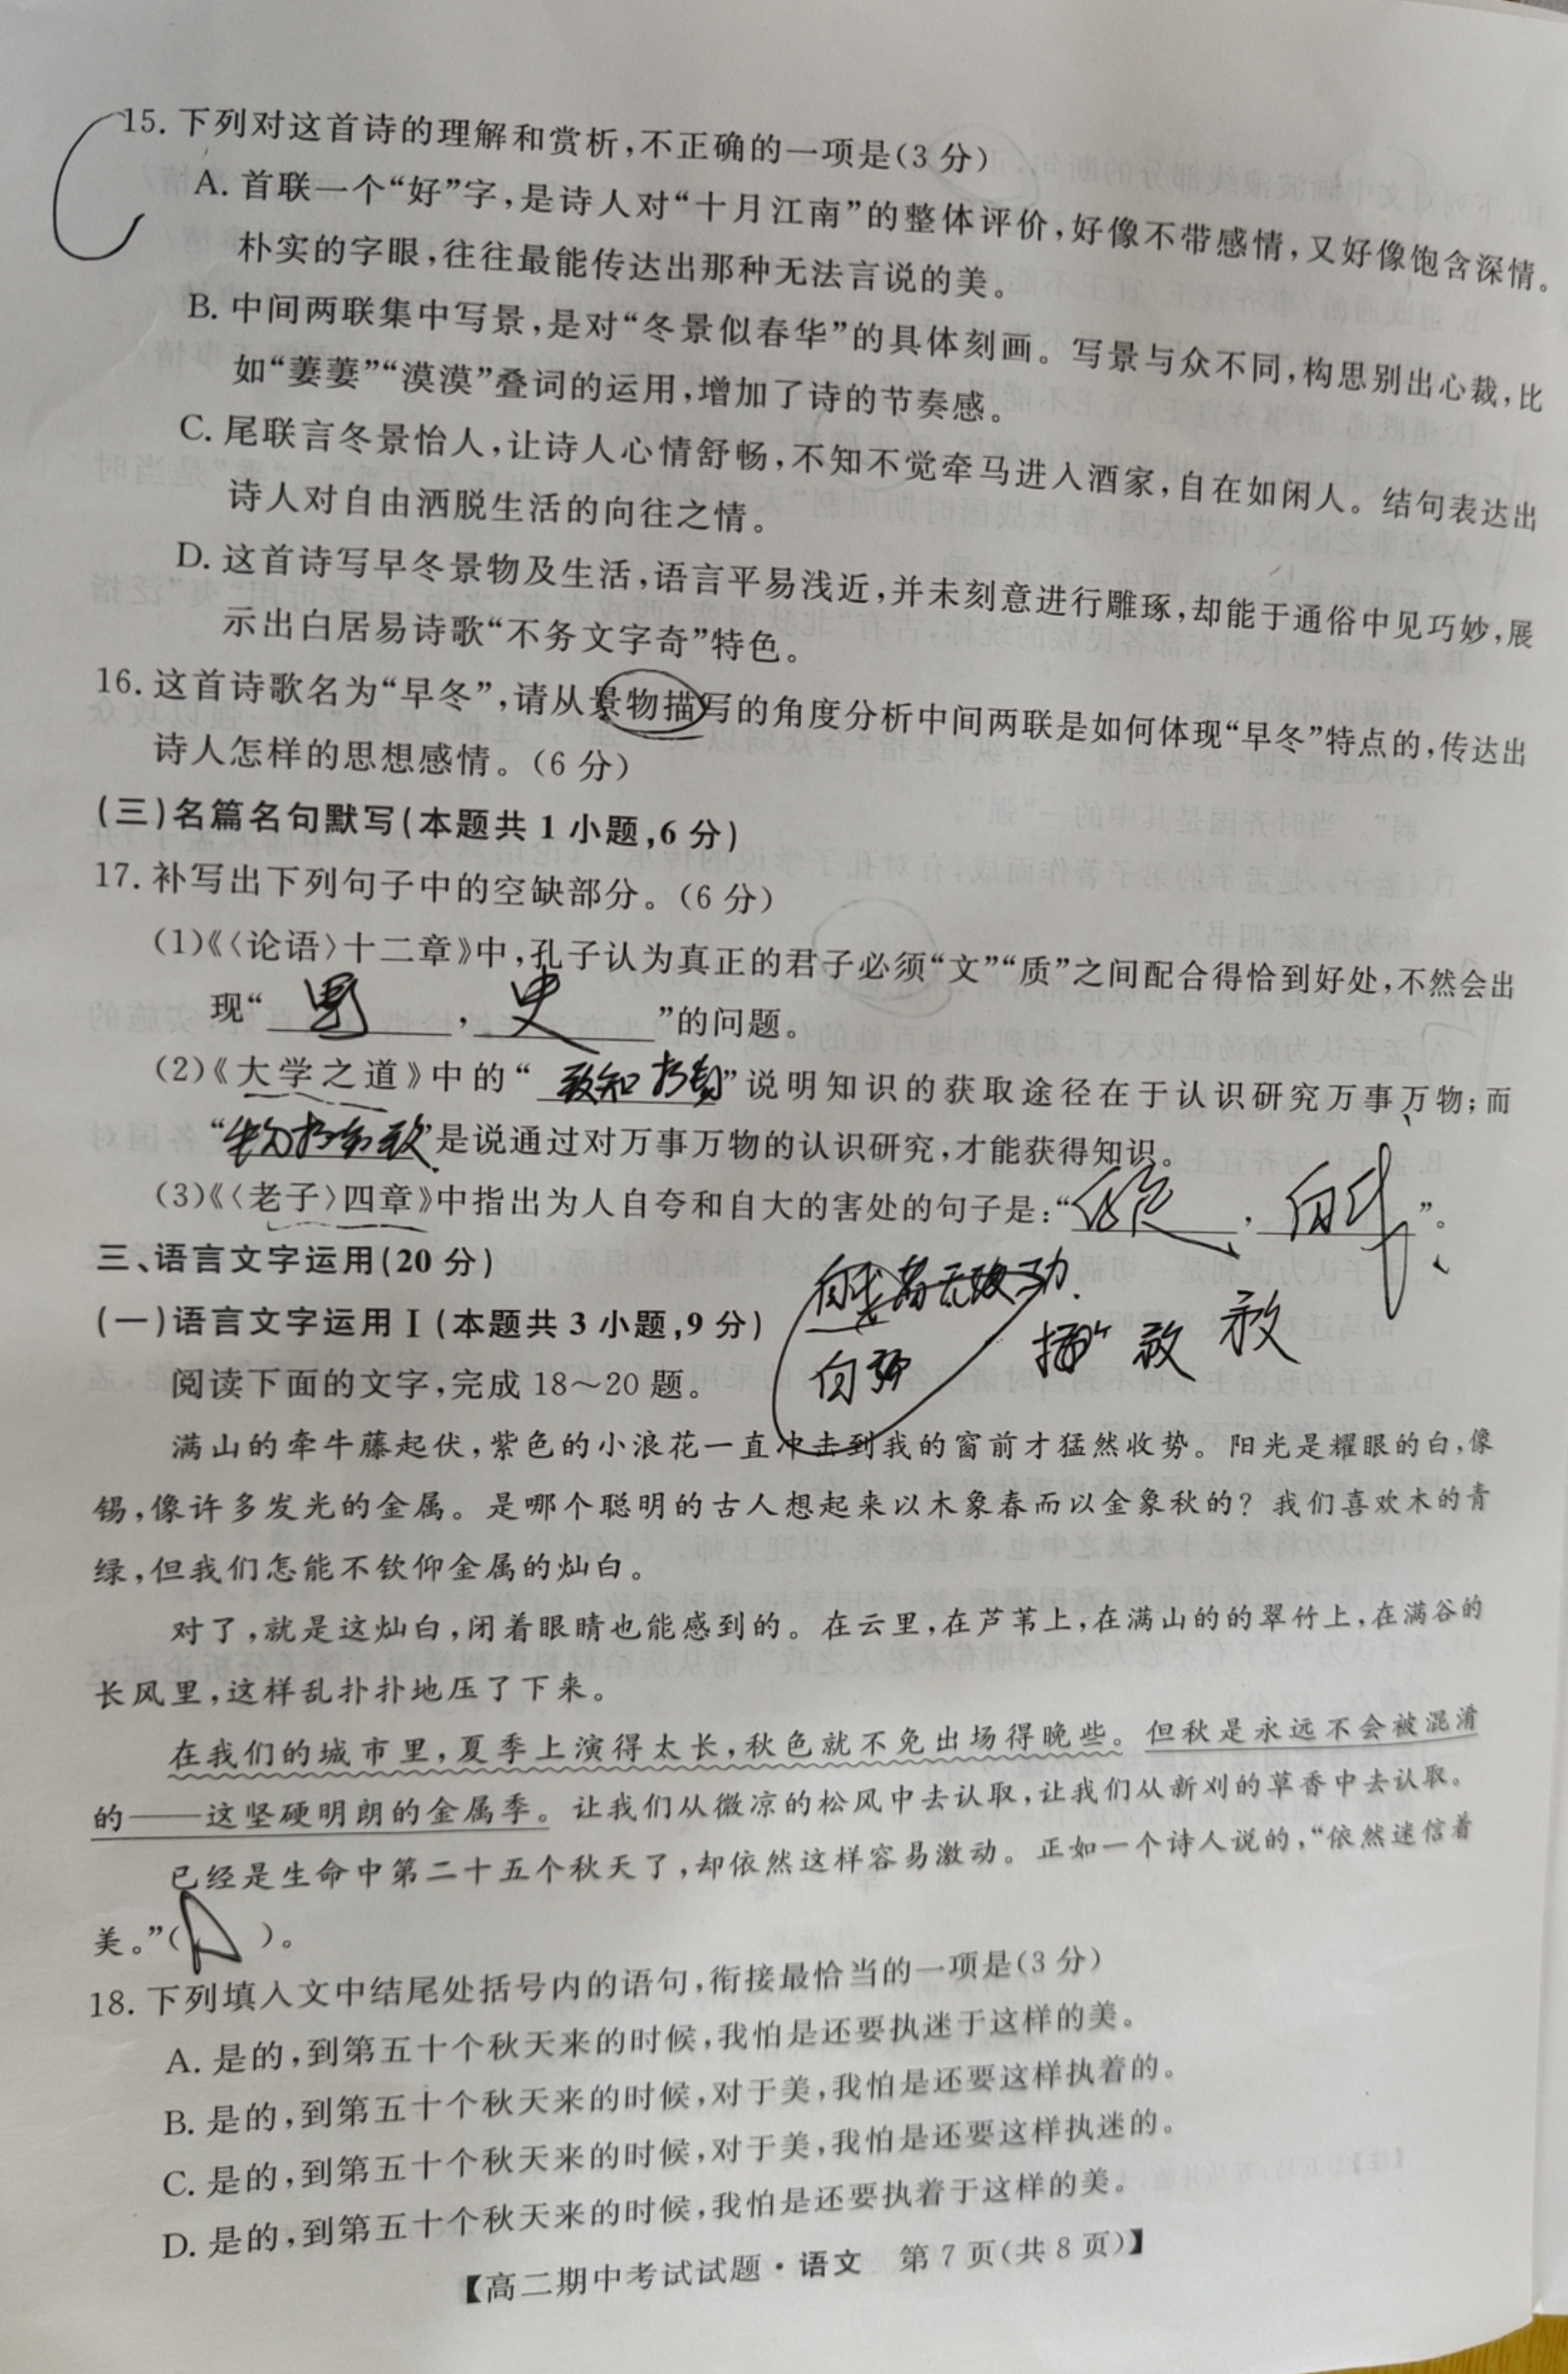 15. 下列对这首诗的理解和赏析,不正确的一项是(3分)
A. 首联一个“好”字,是诗人对“十月江南”的整体评价,好像不带感情,又好像饱含深情。
朴实的字眼,往往最能传达出那种无法言说的美。
B. 中间两联集中写景,是对“冬景似春华”的具体刻画。写景与众不同,构思别出心裁,比
如“萋萋”“漠漠”叠词的运用,增加了诗的节奏感。
C. 尾联言冬景怡人,让诗人心情舒畅,不知不觉牵马进入酒家,自在如闲人。结句表达出
诗人对自由洒脱生活的向往之情。
D. 这首诗写早冬景物及生活,语言平易浅近,并未刻意进行雕琢,却能于通俗中见巧妙,展
示出白居易诗歌“不务文字奇”特色。
16. 这首诗歌名为“早冬”,请从景物描写的角度分析中间两联是如何体现“早冬”特点的,传达出
诗人怎样的思想感情。(6分)
(三)名篇名句默写(本题共1小题,6分)
17. 补写出下列句子中的空缺部分。(6分)
(1)《〈论语〉十二章》中,孔子认为真正的君子必须“文”“质”之间配合得恰到好处,不然会出
现“ , 史 ”的问题。
(2)《大学之道》中的“ 致知 ”说明知识的获取途径在于认识研究万事万物;而
“ ”是说通过对万事万物的认识研究,才能获得知识。
(3)《〈老子〉四章》中指出为人自夸和自大的害处的句子是:“ , 自 ”。
三、语言文字运用(20分)
自 者无 功
(一)语言文字运用Ⅰ(本题共3小题,9分)
自
阅读下面的文字,完成18～20题。
满山的牵牛藤起伏,紫色的小浪花一直冲击到我的窗前才猛然收势。阳光是耀眼的白,像
锡,像许多发光的金属。是哪个聪明的古人想起来以木象春而以金象秋的?我们喜欢木的青
绿,但我们怎能不钦仰金属的灿白。
对了,就是这灿白,闭着眼睛也能感到的。在云里,在芦苇上,在满山的的翠竹上,在满谷的
长风里,这样乱扑扑地压了下来。
在我们的城市里,夏季上演得太长,秋色就不免出场得晚些。但秋是永远不会被混淆
的——这坚硬明朗的金属季。让我们从微凉的松风中去认取,让我们从新刈的草香中去认取。
已经是生命中第二十五个秋天了,却依然这样容易激动。正如一个诗人说的,“依然迷信着
美。”( )。
18. 下列填入文中结尾处括号内的语句,衔接最恰当的一项是(3分)
A. 是的,到第五十个秋天来的时候,我怕是还要执迷于这样的美。
B. 是的,到第五十个秋天来的时候,对于美,我怕是还要这样执着的。
C. 是的,到第五十个秋天来的时候,对于美,我怕是还要这样执迷的。
D. 是的,到第五十个秋天来的时候,我怕是还要执着于这样的美。
【高二期中考试试题·语文 第7页(共8页)】